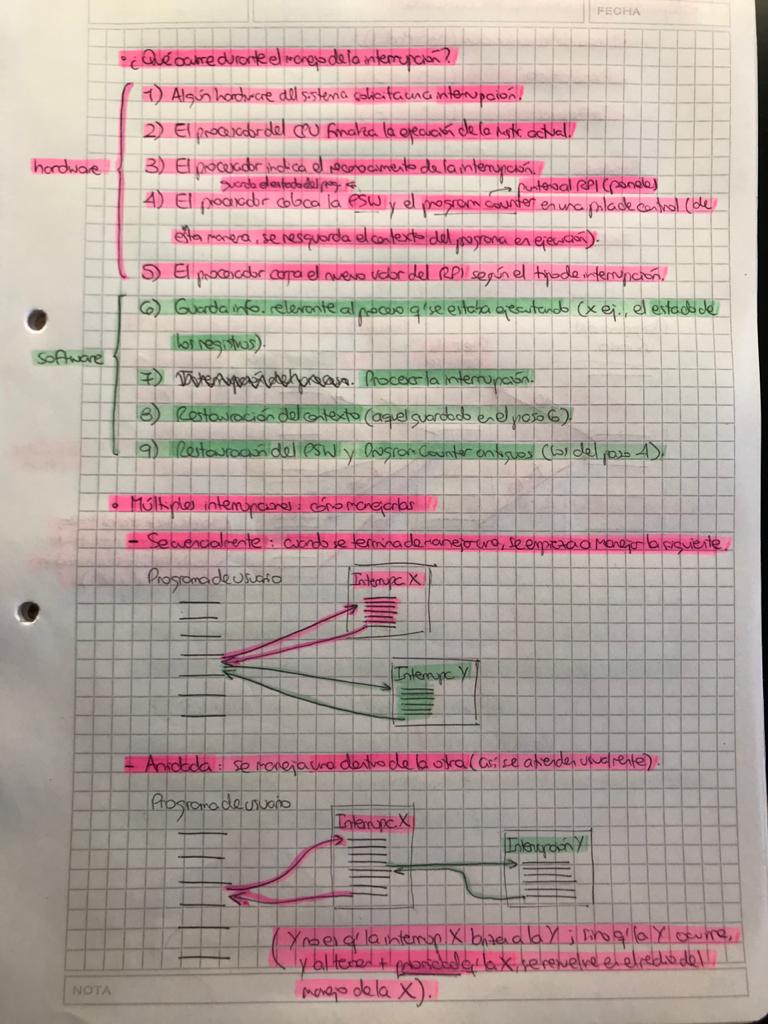 FECHA
• ¿Qué ocurre durante el manejo de la interrupción?
1) Algún hardware del sistema solicita una interrupción.
2) El procesador del CPU finaliza la ejecución de la instr. actual.
hardware
3) El procesador indica el reconocimiento de la interrupción.
guarda el estado del prog. puntero al RPI (parcial)
4) El procesador coloca la PSW y el program counter en una pila de control (de
esta manera, se resguarda el contexto del programa en ejecución).
5) El procesador carga el nuevo valor del RPI según el tipo de interrupción.
6) Guarda info. relevante al proceso q' se estaba ejecutando (x ej., el estado de
los registros).
software
7) Procesar la interrupción.
8) Restauración del contexto (aquel guardado en el paso 6).
9) Restauración del PSW y Program Counter antiguos (los del paso 4).
• Múltiples interrupciones: cómo manejarlas
- Secuencialmente: cuando se termina de manejar una, se empieza a manejar la siguiente.
Programa de usuario
Interrupc X
Interrupc Y
- Anidada: se maneja una dentro de la otra (así se atienden usualmente).
Programa de usuario
Interrupc X
Interrupción Y
(Y no es q' la interrup X llama a la Y; sino q' la Y ocurre,
y al tener + prioridad q' la X, se resuelve en el medio del
manejo de la X).
NOTA